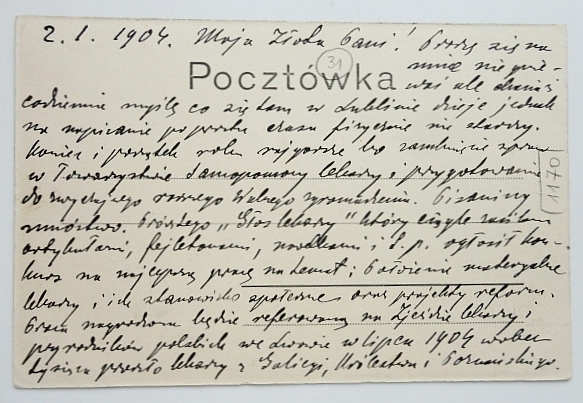 2. 1. 1904. Moja Złota Pani! Proszę się na
31
mnie nie gnie-
Pocztówka
wać ale chociaż
codziennie myślę co się tam w Lublinie dzieje jednak
na napisanie po prostu czasu fizycznie nie starczy.
Koniec i początek roku najgorsze bo zamknięcie spraw
w Towarzystwie Samopomocy lekarzy i przygotowanie
do zwyczajnego rocznego Walnego zgromadzenia. Pisaniny
mnóstwo. Prócz tego „Głos lekarzy" który ciągle zasilam
artykułami, fejletonami, nowelkami i t. p. ogłosił kon-
kurs na najlepszą pracę na temat: Położenie materyalne
lekarzy i ich stanowisko społeczne oraz projekty reform.
Praca nagrodzona będzie referowaną na Zjeździe lekarzy i
przyrodników polskich we Lwowie w lipcu 1904 wobec
tysiąca przeszło lekarzy z Galicyi, Królestwa i Poznańskiego.
1170